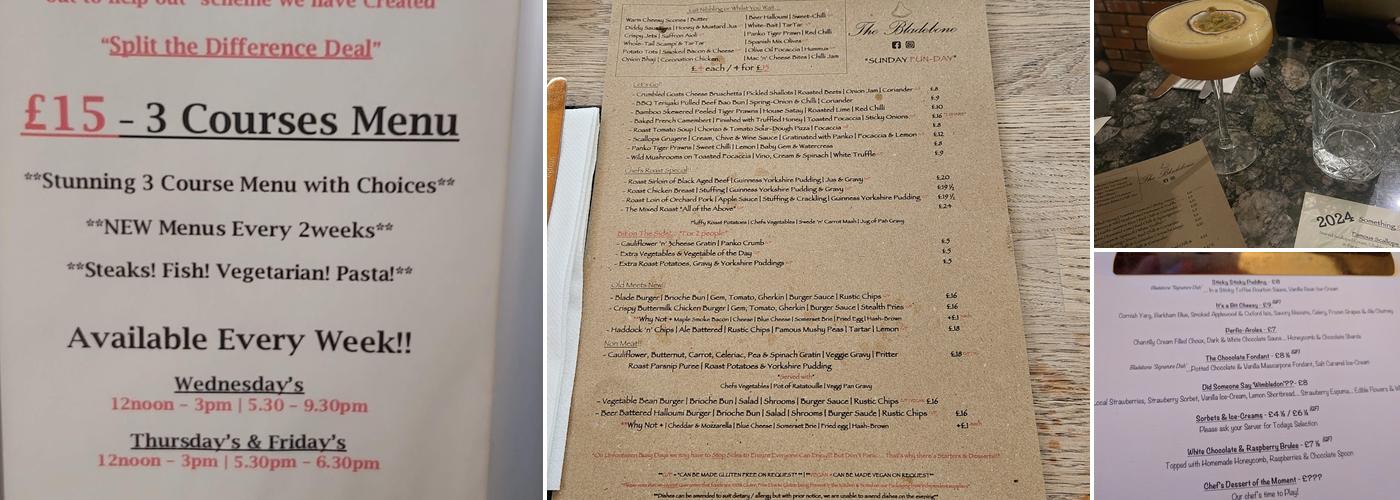 out to help out" scheme we have Created
"Split the Difference Deal"
£15 - 3 Courses Menu
**Stunning 3 Course Menu with Choices**
**NEW Menus Every 2weeks**
**Steaks! Fish! Vegetarian! Pasta!**
Available Every Week!!
Wednesday's
12noon – 3pm | 5.30 – 9.30pm
Thursday's & Friday's
12noon – 3pm | 5.30pm – 6.30pm
Just Nibbling or Whilst You Wait...
Warm Cheesy Scones | Butter
Diddy Sausages | Honey & Mustard Jus
Crispy Jets | Saffron Aioli
Whole-Tail Scampi & TarTar
Potato Tots | Smoked Bacon & Cheese
Onion Bhaji | Coronation Chicken
| Beer Halloumi | Sweet-Chilli
| White-Bait | TarTar
| Panko Tiger Prawn | Red Chilli
| Spanish Mix Olives
| Olive Oil Focaccia | Hummus
| Mac 'n' Cheese Bites | Chilli Jam
each / 4 for £15
The Bladebone
*SUNDAY FUN-DAY*
Let's Go!
- Crumbled Goats Cheese Bruschetta | Pickled Shallots | Roasted Beets | Onion Jam | Coriander £8
- BBQ Teriyaki Pulled Beef Bao Bun | Spring-Onion & Chilli | Coriander £9
- Bamboo Skewered Peeled Tiger Prawns | House Satay | Roasted Lime | Red Chilli £10
- Baked French Camembert | Finished with Truffled Honey | Toasted Focaccia | Sticky Onions £16
- Roast Tomato Soup | Chorizo & Tomato Sour-Dough Pizza | Focaccia £8
- Scallops Gruyere | Cream, Chive & Wine Sauce | Gratinated with Panko | Focaccia & Lemon £12
- Panko Tiger Prawns | Sweet Chilli | Lemon | Baby Gem & Watercress £8
- Wild Mushrooms on Toasted Focaccia | Vino, Cream & Spinach | White Truffle £9
Chefs Roast Special
- Roast Sirloin of Black Aged Beef | Guinness Yorkshire Pudding | Jus & Gravy £20
- Roast Chicken Breast | Stuffing | Guinness Yorkshire Pudding & Gravy £19 ½
- Roast Loin of Orchard Pork | Apple Sauce | Stuffing & Crackling | Guinness Yorkshire Pudding £19 ½
- The Mixed Roast *All of the Above* £24
Fluffy Roast Potatoes | Chefs Vegetables | Swede 'n' Carrot Mash | Jug of Pan Gravy
Bit on The Side!... *For 2 people*
- Cauliflower 'n' 3cheese Gratin | Panko Crumb £5
- Extra Vegetables & Vegetable of the Day £5
- Extra Roast Potatoes, Gravy & Yorkshire Puddings £5
Old Meets New!
- Blade Burger | Brioche Bun | Gem, Tomato, Gherkin | Burger Sauce | Rustic Chips £16
- Crispy Buttermilk Chicken Burger | Gem, Tomato, Gherkin | Burger Sauce | Stealth Fries £16
**Why Not + Maple Smoke Bacon | Cheese | Blue Cheese | Somerset Brie | Fried Egg | Hash-Brown +£1
- Haddock 'n' Chips | Ale Battered | Rustic Chips | Famous Mushy Peas | Tartar | Lemon £18
Non Meat!!
- Cauliflower, Butternut, Carrot, Celeriac, Pea & Spinach Gratin | Veggie Gravy | Fritter £18
Roast Parsnip Puree | Roast Potatoes & Yorkshire Pudding
*Served with*
Chefs Vegetables | Pot of Ratatouille | Veggi Pan Gravy
- Vegetable Bean Burger | Brioche Bun | Salad | Shrooms | Burger Sauce | Rustic Chips £16
- Beer Battered Halloumi Burger | Brioche Bun | Salad | Shrooms | Burger Sauce | Rustic Chips £16
**Why Not + | Cheddar & Mozzarella | Blue Cheese | Somerset Brie | Fried egg | Hash-Brown +£1
*CAN BE MADE GLUTEN FREE ON REQUEST** | **VEGAN = CAN BE MADE VEGAN ON REQUEST**
**Dishes can be amended to suit dietary / allergy but with prior notice, we are unable to amend dishes on the evening**
The Bladebone
2024 Something
Famous Scallops
Sticky Sticky Pudding - £8
Bladebone 'Signature Dish' ... In a Sticky Toffee Bourbon Sauce, Vanilla Bean Ice-Cream
It's a Bit Cheesy - £9 (GF)
Cornish Yarg, Barkham Blue, Smoked Applewood & Oxford Isis, Savory Biscuits, Celery, Frozen Grapes & Ale Chutney
Perfic-Aroles - £7
Chantilly Cream Filled Choux, Dark & White Chocolate Sauce... Honeycomb & Chocolate Shards
The Chocolate Fondant - £8 ½ (GF)
Bladebone 'Signature Dish' ...Potted Chocolate & Vanilla Mascarpone Fondant, Salt Caramel Ice-Cream
Did Someone Say 'Wimbledon'?? - £8
Local Strawberries, Strawberry Sorbet, Vanilla Ice-Cream, Lemon Shortbread... Strawberry Espuma... Edible Flowers &
Sorbets & Ice-Creams - £4 ½ / £6 ½ (GF)
Please ask your Server for Todays Selection
White Chocolate & Raspberry Brulee - £7 ½ (GF)
Topped with Homemade Honeycomb, Raspberries & Chocolate Spoon
Chef's Dessert of the Moment - £???
Our chef's time to Play!